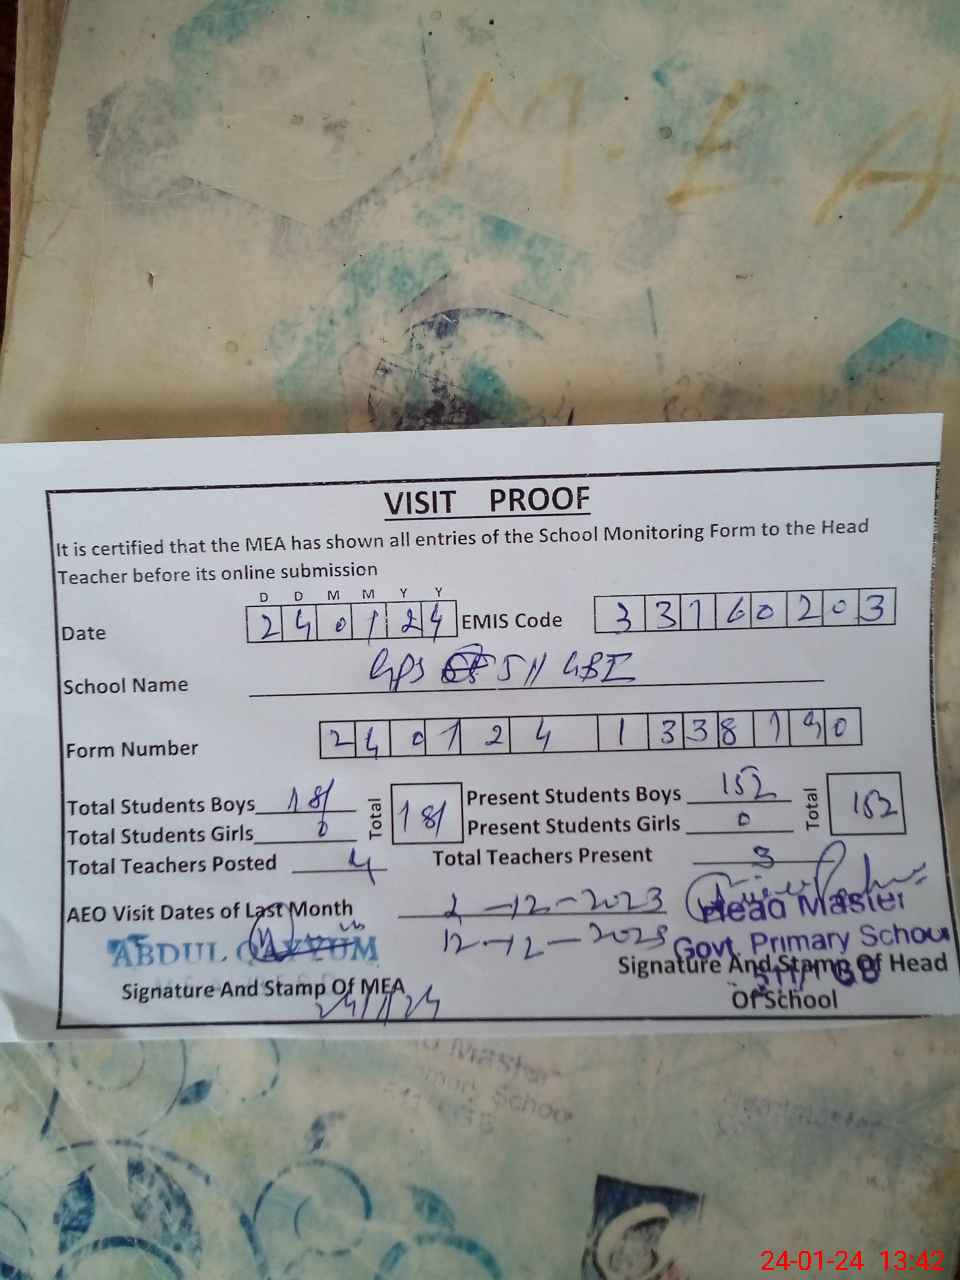 M.E.A
VISIT PROOF
It is certified that the MEA has shown all entries of the School Monitoring Form to the Head
Teacher before its online submission
D D M M Y Y
Date 2 4 0 1 2 4 EMIS Code 3 3 1 6 0 2 0 3
School Name GPS 511 GB I
Form Number 2 4 0 1 2 4 1 3 3 8 1 9 0
Total Students Boys 181 Total 181 Present Students Boys 152 Total 152
Total Students Girls 0 Present Students Girls 0
Total Teachers Posted 4 Total Teachers Present 3
AEO Visit Dates of Last Month 2-12-2023
12-12-2023
Head Master
Govt. Primary School
511/1 GB
ABDUL QAYYUM
Signature And Stamp Of MEA
24/1/24
Signature And Stamp Of Head
Of School
Master
School
24-01-24 13:42